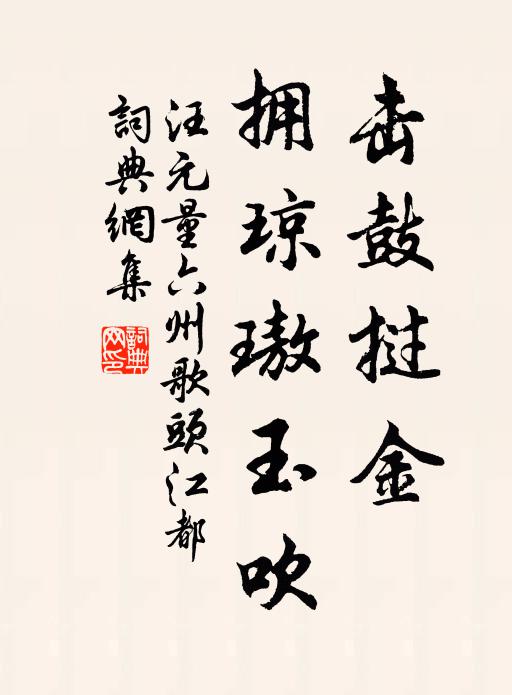 击鼓挝金
拥琼璈玉吹
汪元量六州歌頭江都
詞典網集
詞典网印